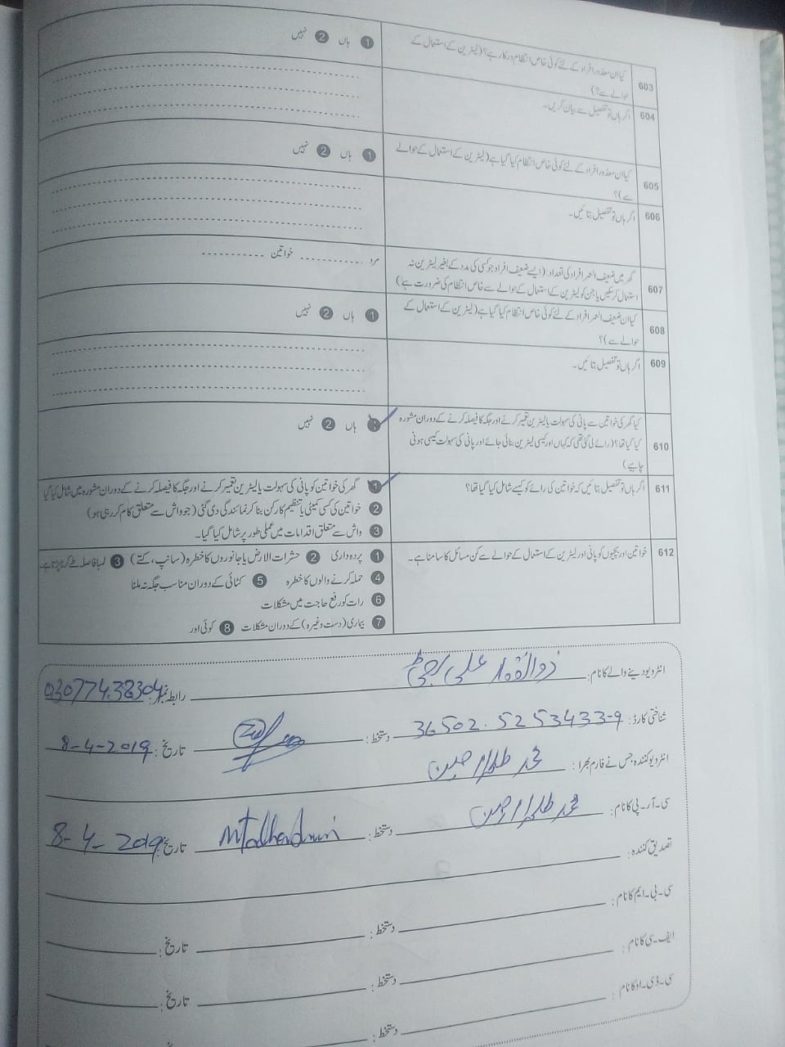 603 کیا ان معذور افراد کے لئے کوئی خاص انتظام درکار ہے؟ (لیٹرین کے استعمال کے
حوالے سے؟)
1 ہاں 2 نہیں
604 اگر ہاں تو تفصیل سے بیان کریں۔
605 کیا ان معذور افراد کے لئے کوئی خاص انتظام کیا گیا ہے (لیٹرین کے استعمال کے حوالے
سے)؟
1 ہاں 2 نہیں
606 اگر ہاں تو تفصیل بتائیں۔
607 گھر میں ضعیف العمر افراد کی تعداد۔ (ایسے ضعیف افراد جو کسی کی مدد کے بغیر لیٹرین نہ
استعمال کرسکیں یا جن کو لیٹرین کے استعمال کے حوالے سے خاص انتظام کی ضرورت ہے)
مرد ---------- خواتین ----------
608 کیا ان ضعیف العمر افراد کے لئے کوئی خاص انتظام کیا گیا ہے (لیٹرین کے استعمال کے
حوالے سے)؟
1 ہاں 2 نہیں
609 اگر ہاں تو تفصیل بتائیں۔
610 کیا گھر کی خواتین سے پانی کی سہولت یا لیٹرین تعمیر کرنے اور جگہ کا فیصلہ کرنے کے دوران مشورہ
کیا گیا تھا؟ (رائے لی گئی تھی کہ کہاں اور کیسی لیٹرین بنائی جائے اور پانی کی سہولت کیسی ہونی
چاہیے)
1 ہاں 2 نہیں
611 اگر ہاں تو تفصیل بتائیں کہ خواتین کی رائے کو کیسے شامل کیا گیا تھا؟
1 گھر کی خواتین کو پانی کی سہولت یا لیٹرین تعمیر کرنے اور جگہ کا فیصلہ کرنے کے دوران مشورہ میں شامل کیا گیا
2 خواتین کی کسی کمیٹی یا تنظیم کا رکن بنا کر نمائندگی دی گئی (جو واش سے متعلق کام کر رہی ہو)
3 واش سے متعلق اقدامات میں عملی طور پر شامل کیا گیا۔
612 خواتین اور بچیوں کو پانی اور لیٹرین کے استعمال کے حوالے سے کن مسائل کا سامنا ہے۔
1 پردہ داری 2 حشرات الارض یا جانوروں کا خطرہ (سانپ، کتے) 3 لمبا فاصلہ طے کرنا پڑتا ہے۔
4 حملہ کرنے والوں کا خطرہ 5 کٹائی کے دوران مناسب جگہ نہ ملنا
6 رات کو رفع حاجت میں مشکلات
7 بیماری (دست وغیرہ) کے دوران مشکلات 8 کوئی اور
انٹرویو دینے والے کا نام: ذوالفقار علی رابطہ نمبر: 03077438304
شناختی کارڈ: 36502-5253433-9 دستخط: تاریخ: 8-4-2019
انٹرویو کنندہ جس نے فارم بھرا: محمد طلحہ
سی۔آر۔پی کا نام: محمد طلحہ دستخط: تاریخ: 8-4-2019
تصدیق کنندہ:
سی۔بی۔ایم کا نام: دستخط: تاریخ:
ایف۔سی کا نام: دستخط: تاریخ:
سی۔ڈی۔او کا نام: دستخط: تاریخ: